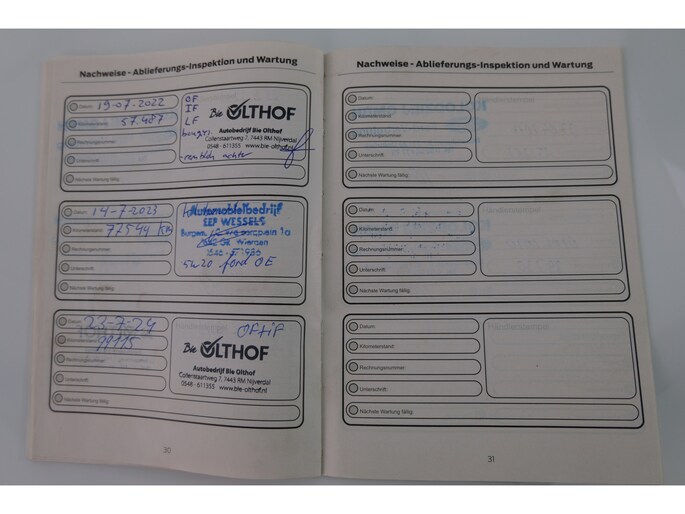 Nachweise - Ablieferungs-Inspektion und Wartung
Datum 19-07-2022
Kilometerstand: 57487
Rechnungsnummer:
Unterschrift:
Nächste Wartung fällig:
OF
IF
LF
Bie OLTHOF
Autobedrijf Bie Olthof
Collenstaartweg 7, 7443 RM Nijverdal
0548 - 611355 www.bie-olthof.nl
Datum 14-7-2023
Kilometerstand: 77544 KM
Rechnungsnummer:
Unterschrift:
Nächste Wartung fällig:
Automobielbedrijf
EEP WESSELS
5w20 ford OE
Datum: 23-7-24
Kilometerstand:
Rechnungsnummer:
Unterschrift:
Nächste Wartung fällig:
OF+iF
Bie OLTHOF
Autobedrijf Bie Olthof
Collenstaartweg 7, 7443 RM Nijverdal
0548 - 611355 www.bie-olthof.nl
30
Nachweise - Ablieferungs-Inspektion und Wartung
Datum:
Kilometerstand:
Rechnungsnummer:
Unterschrift:
Nächste Wartung fällig:
Datum:
Kilometerstand:
Rechnungsnummer:
Unterschrift:
Nächste Wartung fällig:
Datum:
Kilometerstand:
Rechnungsnummer:
Unterschrift:
Nächste Wartung fällig:
31